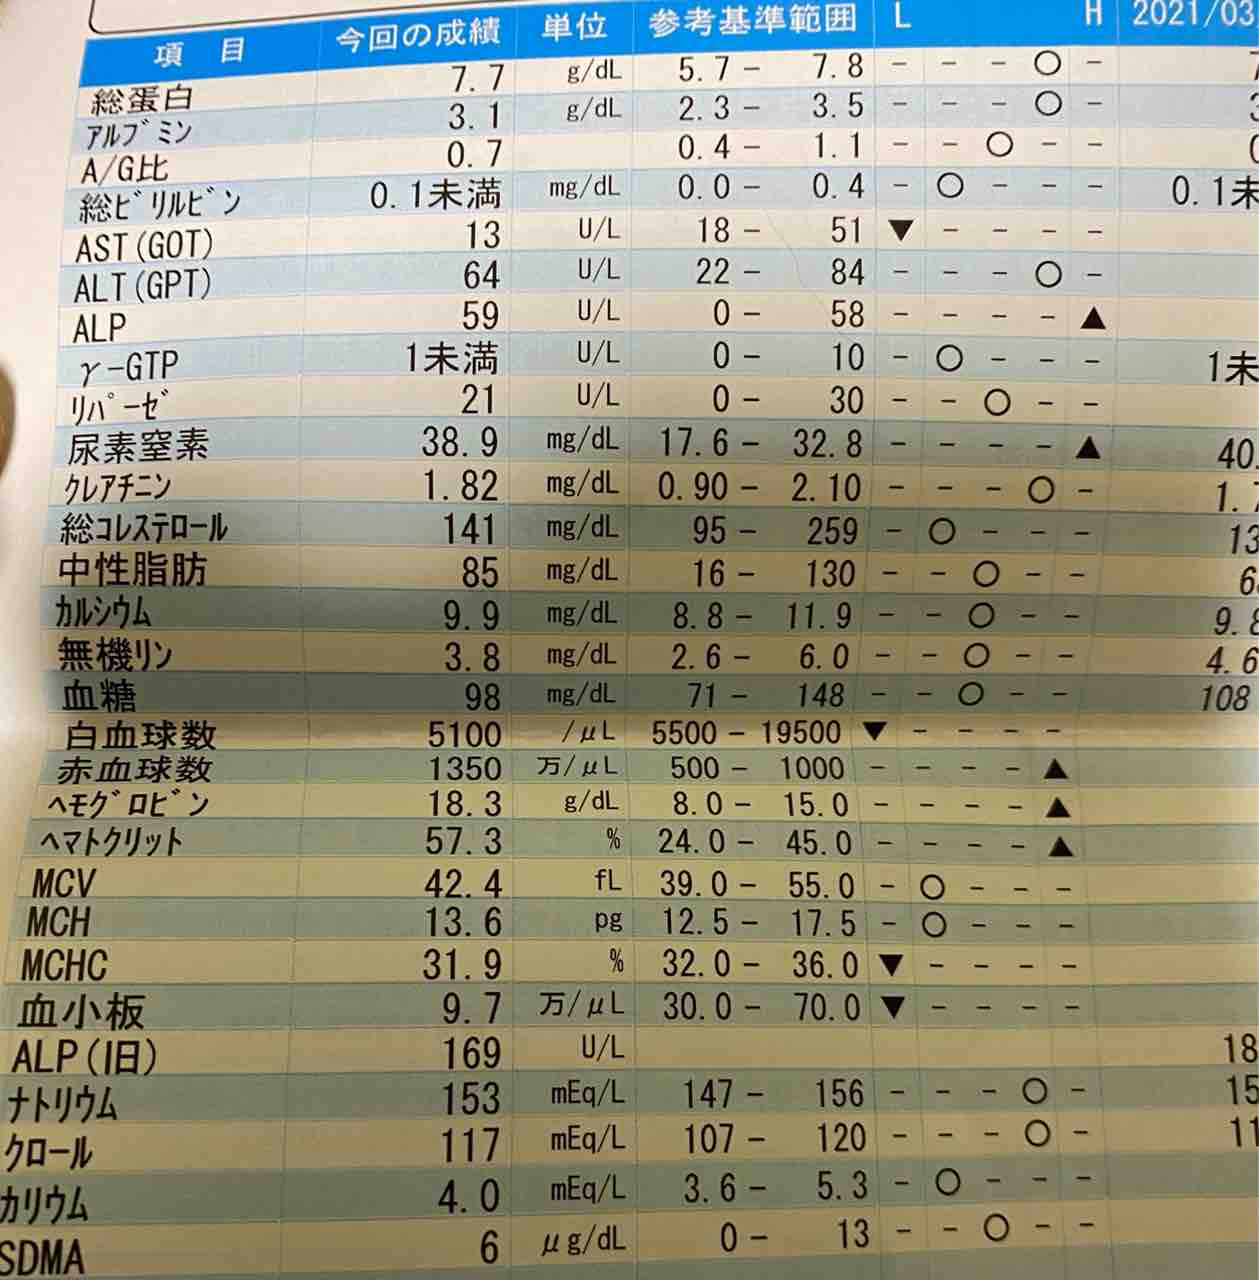 項 目 今回の成績 単位 参考基準範囲 L H 2021/03
総蛋白 7.7 g/dL 5.7 - 7.8 - - - ○ -
アルブミン 3.1 g/dL 2.3 - 3.5 - - - ○ -
A/G比 0.7 0.4 - 1.1 - - ○ - -
総ビリルビン 0.1未満 mg/dL 0.0 - 0.4 - ○ - - - 0.1未
AST(GOT) 13 U/L 18 - 51 ▼ - - - -
ALT(GPT) 64 U/L 22 - 84 - - - ○ -
ALP 59 U/L 0 - 58 - - - - ▲
γ-GTP 1未満 U/L 0 - 10 - ○ - - - 1未
リパーゼ 21 U/L 0 - 30 - - ○ - -
尿素窒素 38.9 mg/dL 17.6 - 32.8 - - - - ▲ 40.
クレアチニン 1.82 mg/dL 0.90 - 2.10 - - - ○ - 1.7
総コレステロール 141 mg/dL 95 - 259 - ○ - - - 13
中性脂肪 85 mg/dL 16 - 130 - - ○ - - 6
カルシウム 9.9 mg/dL 8.8 - 11.9 - - ○ - - 9.8
無機リン 3.8 mg/dL 2.6 - 6.0 - - ○ - - 4.6
血糖 98 mg/dL 71 - 148 - - ○ - - 108
白血球数 5100 /μL 5500 - 19500 ▼ - - - -
赤血球数 1350 万/μL 500 - 1000 - - - - ▲
ヘモグロビン 18.3 g/dL 8.0 - 15.0 - - - - ▲
ヘマトクリット 57.3 % 24.0 - 45.0 - - - - ▲
MCV 42.4 fL 39.0 - 55.0 - ○ - - -
MCH 13.6 pg 12.5 - 17.5 - ○ - - -
MCHC 31.9 % 32.0 - 36.0 ▼ - - - -
血小板 9.7 万/μL 30.0 - 70.0 ▼ - - - -
ALP(旧) 169 U/L 18
ナトリウム 153 mEq/L 147 - 156 - - - ○ - 15
クロール 117 mEq/L 107 - 120 - - - ○ - 11
カリウム 4.0 mEq/L 3.6 - 5.3 - ○ - - -
SDMA 6 μg/dL 0 - 13 - - ○ - -